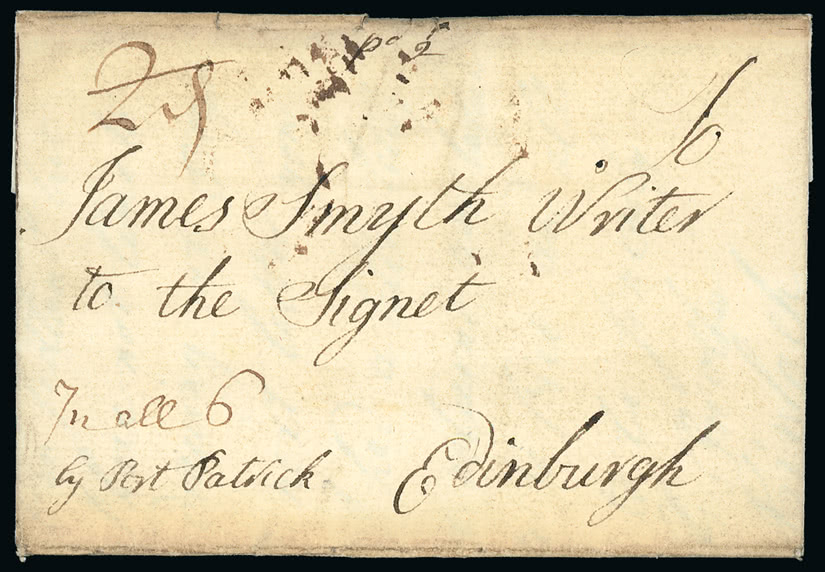 pd 2
6
James Smyth Writer
to the Signet
In all 6
by Port Patrick
Edinburgh